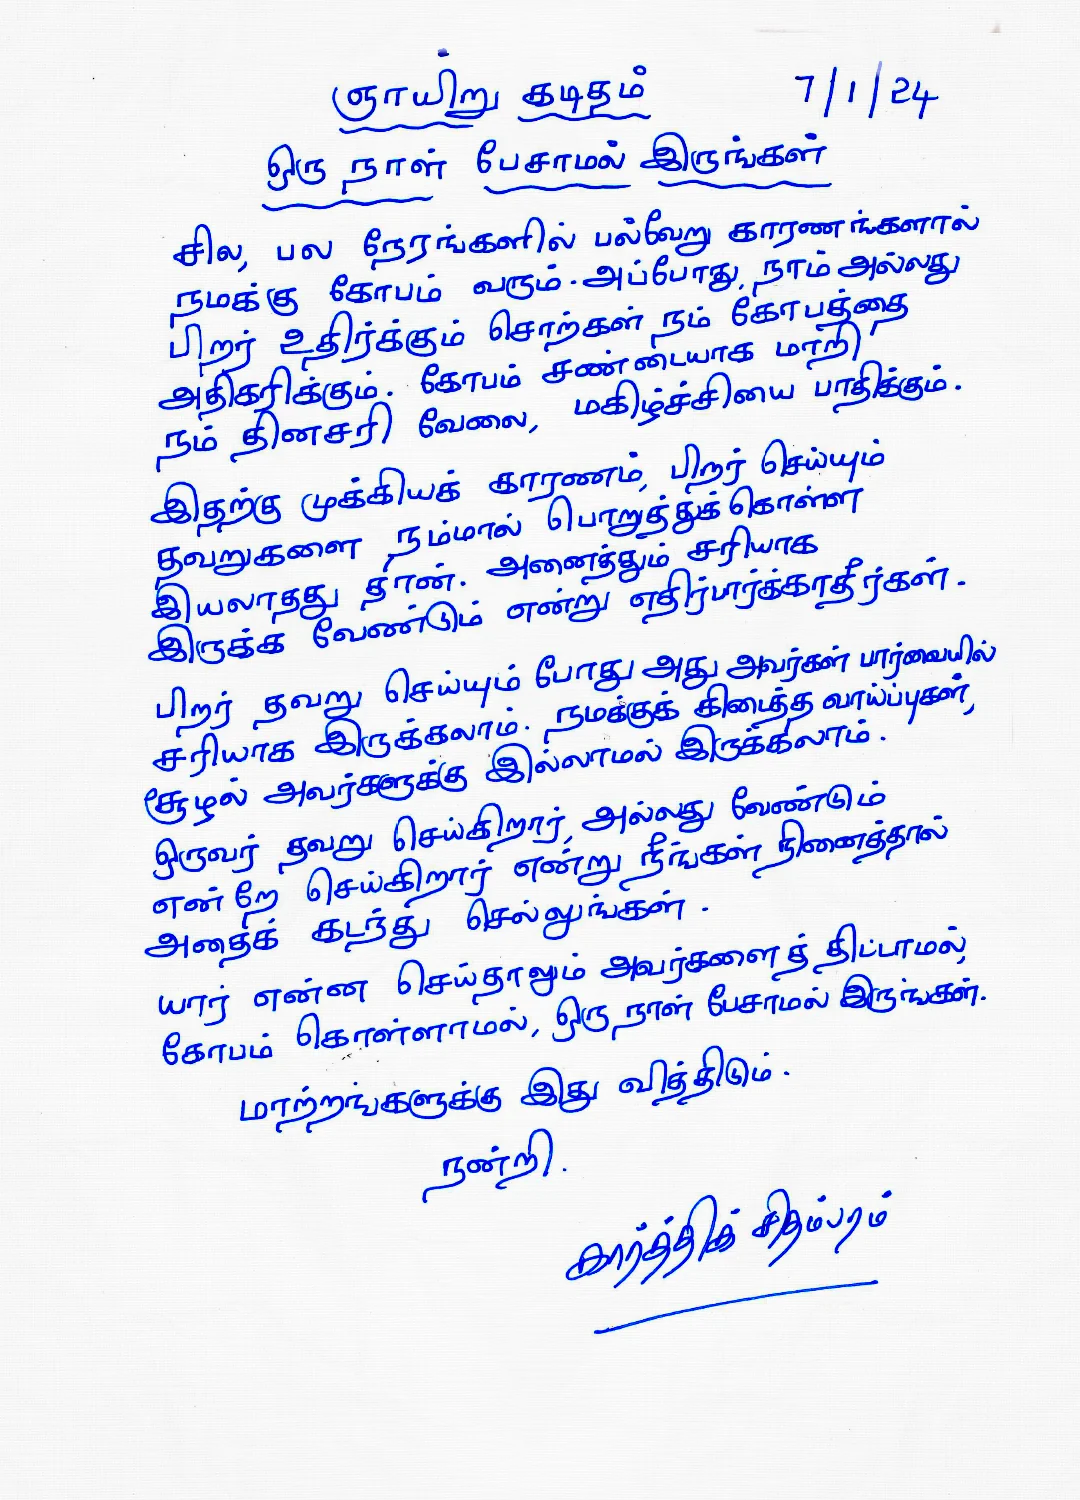 ஞாயிறு கடிதம் 7/1/24
ஒரு நாள் பேசாமல் இருங்கள்
சில, பல நேரங்களில் பல்வேறு காரணங்களால்
நமக்கு கோபம் வரும். அப்போது, நாம் அல்லது
பிறர் உதிர்க்கும் சொற்கள் நம் கோபத்தை
அதிகரிக்கும். கோபம் சண்டையாக மாறி
நம் தினசரி வேலை, மகிழ்ச்சியை பாதிக்கும்.
இதற்கு முக்கியக் காரணம், பிறர் செய்யும்
தவறுகளை நம்மால் பொறுத்துக் கொள்ள
இயலாதது தான். அனைத்தும் சரியாக
இருக்க வேண்டும் என்று எதிர்பார்க்காதீர்கள்.
பிறர் தவறு செய்யும் போது அது அவர்கள் பார்வையில்
சரியாக இருக்கலாம். நமக்குக் கிடைத்த வாய்ப்புகள்,
சூழல் அவர்களுக்கு இல்லாமல் இருக்கலாம்.
ஒருவர் தவறு செய்கிறார், அல்லது வேண்டும்
என்றே செய்கிறார் என்று நீங்கள் நினைத்தால்
அதைக் கடந்து செல்லுங்கள்.
யார் என்ன செய்தாலும் அவர்களைத் திட்டாமல்,
கோபம் கொள்ளாமல், ஒரு நாள் பேசாமல் இருங்கள்.
மாற்றங்களுக்கு இது வித்திடும்.
நன்றி.
கார்த்திக் சிதம்பரம்